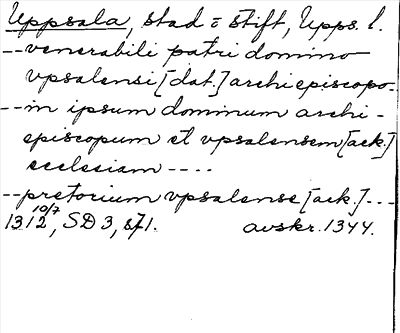 Uppsala, stad o stift, Upps. l.
-- venerabili patri domino
vpsalensi [dat.] archiepiscopo.
-- in ipsum dominum archi-
episcopum et vpsalensem [ack.]
ecclesiam ----
-- pretorium vpsalense [ack.] ---
1312 10/7, SD 3, s71. avskr. 1344.